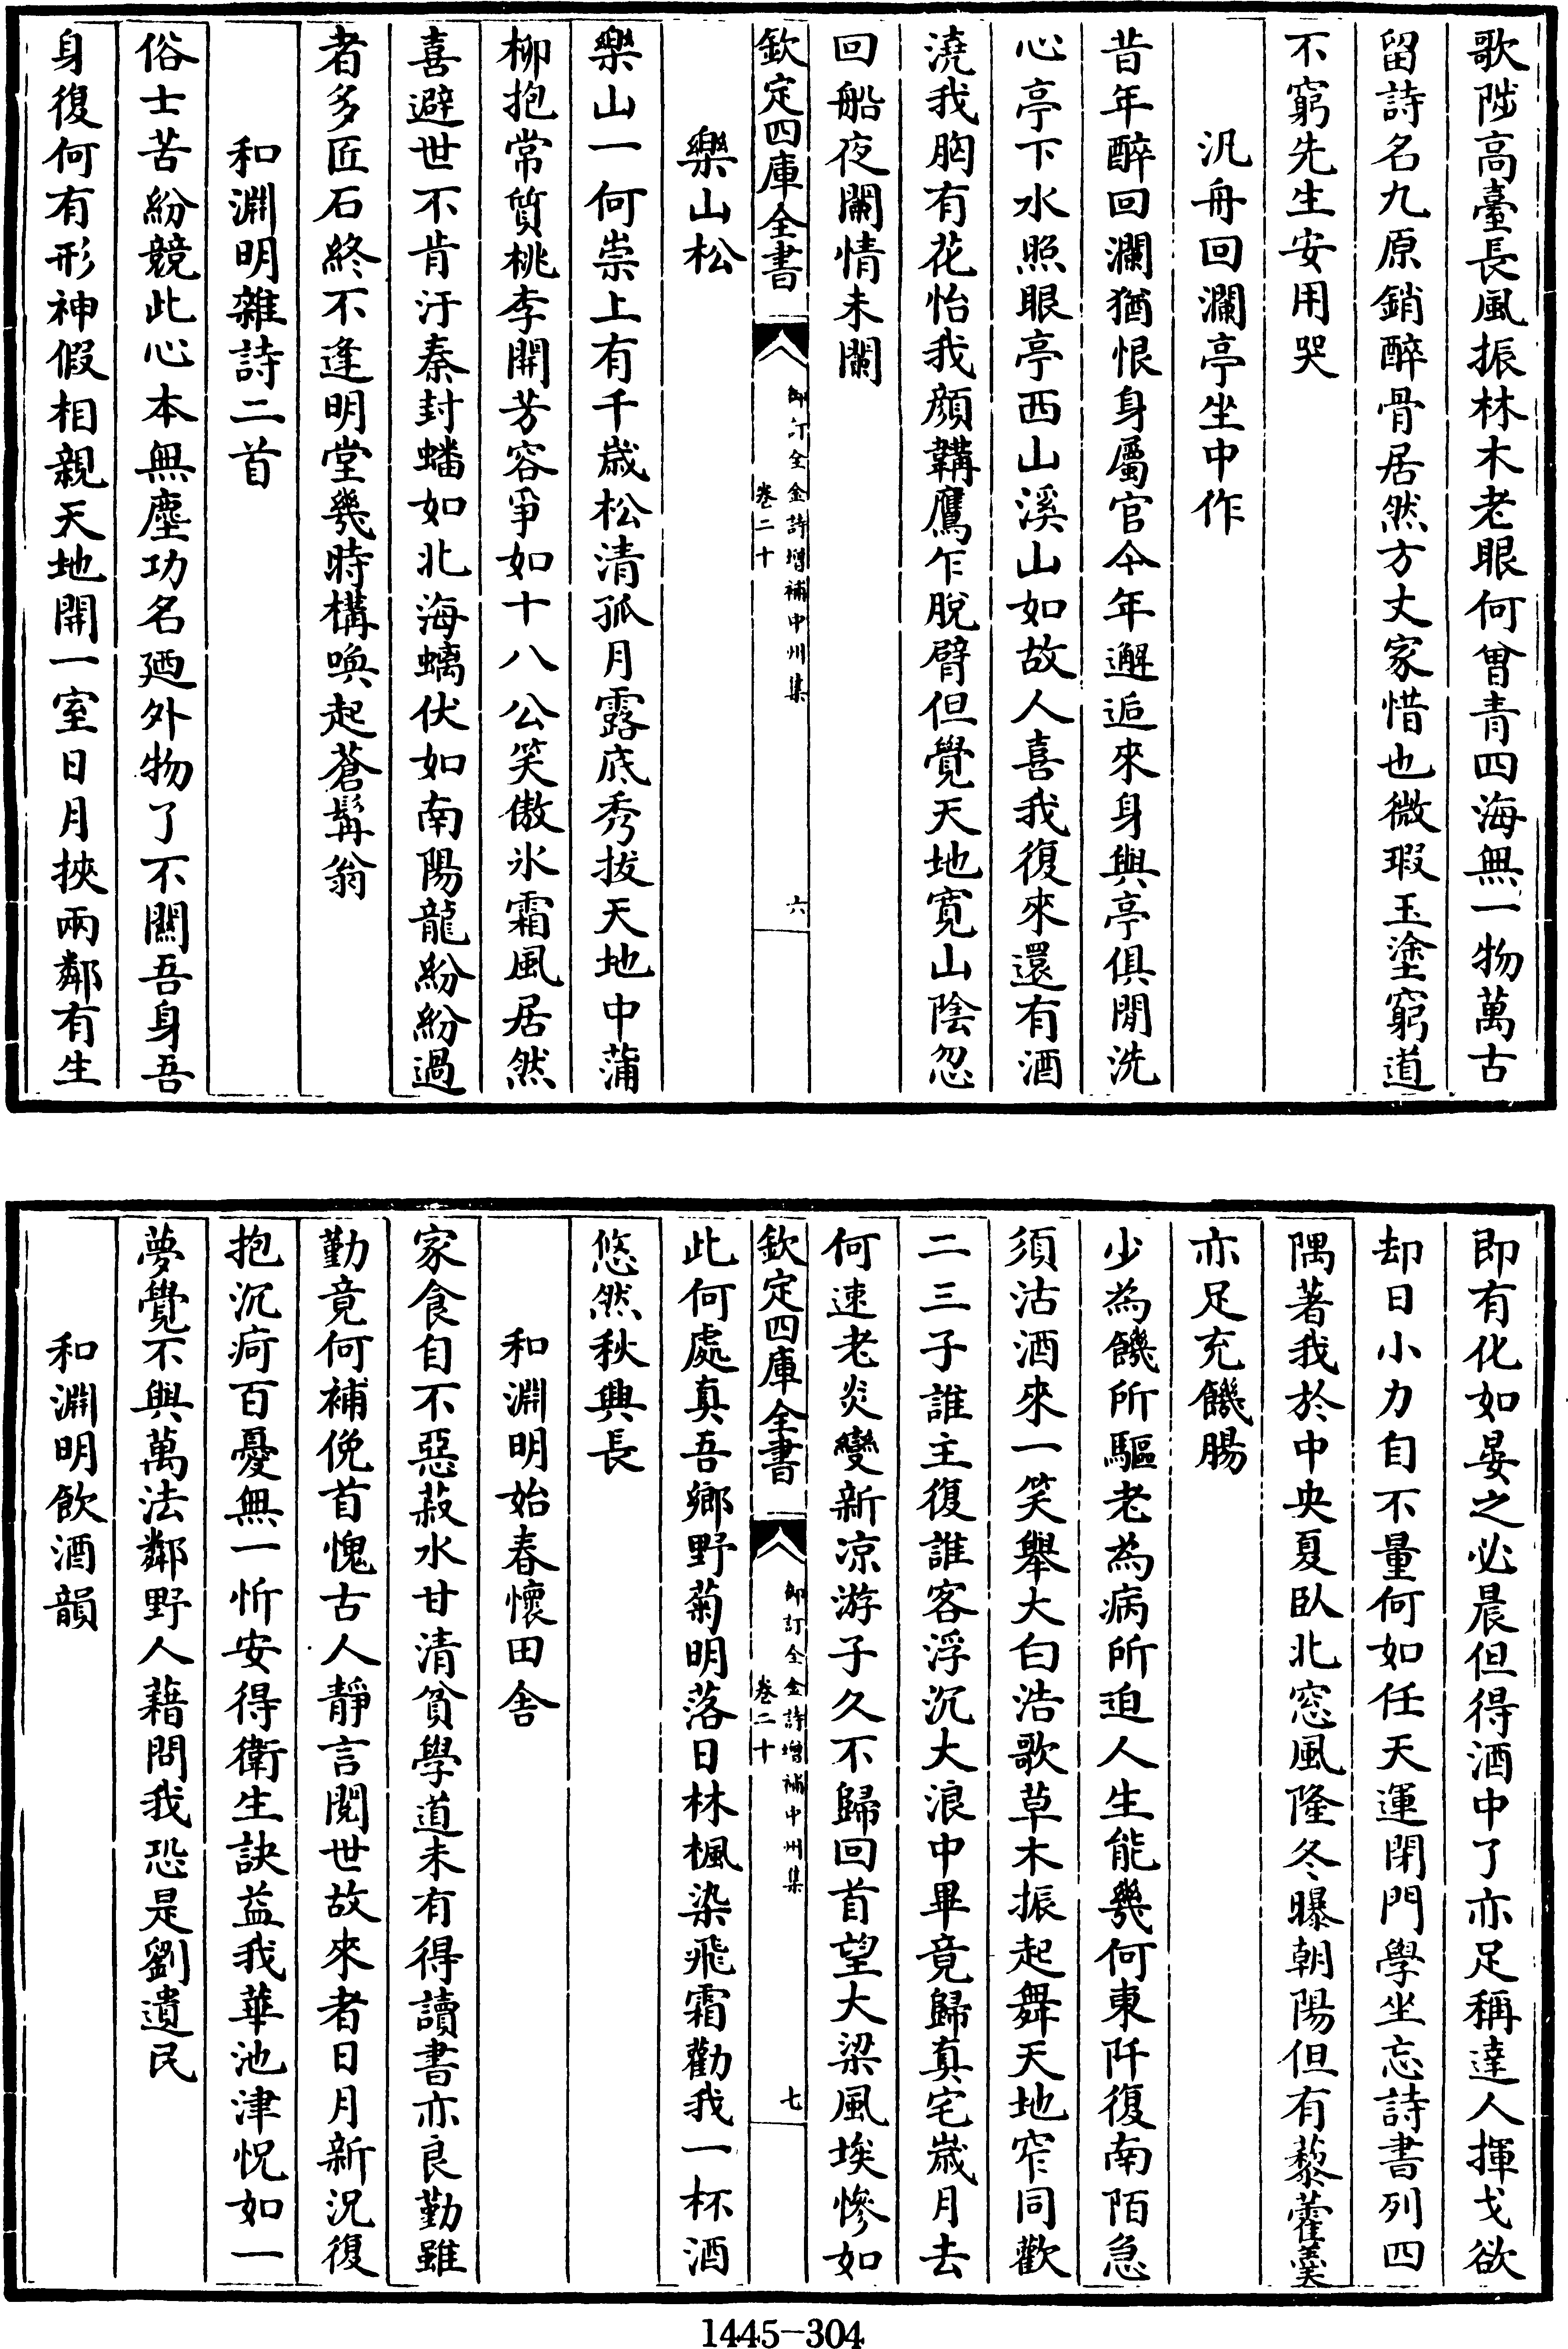 歌陟高臺長風振林木老眼何曾青四海無一物萬古
留詩名九原銷醉骨居然方丈家惜也微瑕玉塗窮道
不窮先生安用哭
汎舟回瀾亭坐中作
昔年醉回瀾猶恨身屬官今年邂逅來身與亭俱閒洗
心亭下水照眼亭西山溪山如故人喜我復來還有酒
澆我胸有花怡我顔韝鷹乍脫臂但覺天地寛山陰忽
回船夜闌情未闌
欽定四庫全書
御訂全金詩增補中州集
卷二十
六
樂山松
樂山一何崇上有千歲松清孤月露底秀拔天地中蒲
柳抱常質桃李開芳容爭如十八公笑傲氷霜風居然
喜避世不肯汙秦封蟠如北海螭伏如南陽龍紛紛過
者多匠石終不逢明堂幾時構喚起蒼髯翁
和淵明雜詩二首
俗士苦紛競此心本無塵功名廼外物了不關吾身吾
身復何有形神假相親天地開一室日月挾兩鄰有生
即有化如晏之必晨但得酒中了亦足稱達人揮戈欲
却日小力自不量何如任天運閉門學坐忘詩書列四
隅著我於中央夏臥北窓風隆冬曝朝陽但有藜藿羹
亦足充饑腸
少為饑所驅老為病所迫人生能幾何東阡復南陌急
須沽酒來一笑舉大白浩歌草木振起舞天地窄同歡
二三子誰主復誰客浮沉大浪中畢竟歸真宅歲月去
何速老炎變新凉游子久不歸回首望大梁風埃慘如
欽定四庫全書
御訂全金詩增補中州集
卷二十
七
此何處真吾鄉野菊明落日林楓染飛霜勸我一杯酒
悠然秋興長
和淵明始春懷田舍
家食自不惡菽水甘清貧學道未有得讀書亦良勤雖
勤竟何補俛首愧古人靜言閱世故來者日月新況復
抱沉疴百憂無一忻安得衛生訣益我華池津怳如一
夢覺不與萬法鄰野人藉問我恐是劉遺民
和淵明飲酒韻
1445-304